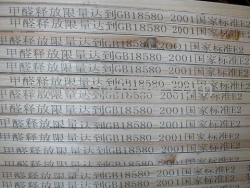 甲醛释放限量达到GB18580-2001国家标准E2
甲醛释放限量达到GB18580-2001国家标准E2
甲醛释放限量达到GB18580-2001国家标准E2
甲醛释放限量达到GB18580-2001国家标准E2
甲醛释放限量达到GB18580-2001国家标准E2
甲醛释放限量达到GB18580-2001国家标准E2
甲醛释放限量达到GB18580-2001国家标准E2
甲醛释放限量达到GB18580-2001国家标准E2
甲醛释放限量达到GB18580-2001国家标准E2
甲醛释放限量达到GB18580-2001国家标准E2